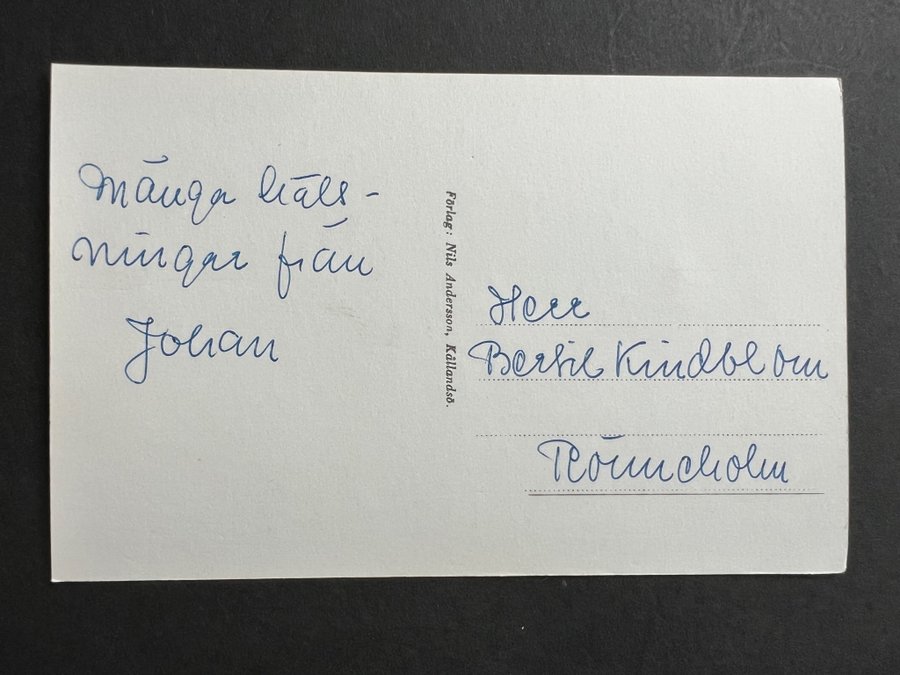 Många häls-
ningar från
Johan
Förlag: Nils Andersson, Kållandsö.
Herr
Bertil Kindblom